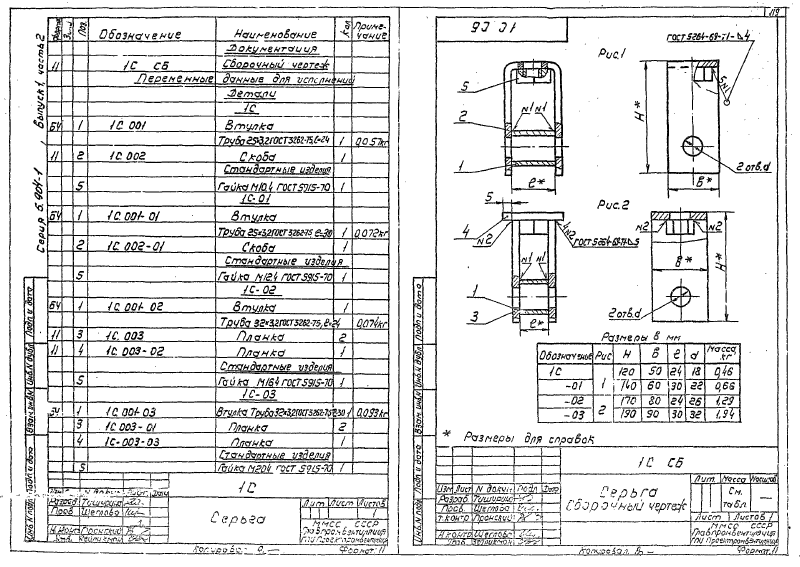 Серия 5.904-1 Выпуск 1, часть 2
Формат Зона Поз. Обозначение Наименование Кол Примечание
Документация
11 1С СБ Сборочный чертеж
Переменные данные для исполнений
Детали
1С
БЧ 1 1С 001 Втулка
Труба 25×3,2 ГОСТ 3262-75, ℓ=24 1 0,057кг
11 2 1С 002 Скоба 1
Стандартные изделия
5 Гайка М10.4 ГОСТ 5915-70 1
1С-01
БЧ 1 1С 001-01 Втулка 1
Труба 25×3,2 ГОСТ 3262-75 ℓ=30 0,072кг
2 1С 002-01 Скоба 1
Стандартные изделия
5 Гайка М12.4 ГОСТ 5915-70 1
1С-02
БЧ 1 1С 001-02 Втулка 1
Труба 32×3,2 ГОСТ 3262-75, ℓ=24 0,074кг
11 3 1С 003 Планка 2
11 4 1С 003-02 Планка 1
Стандартные изделия
5 Гайка М16.4 ГОСТ 5915-70 1
1С-03
БЧ 1 1С 001-03 Втулка Труба 32×3,2 ГОСТ 3262-75 ℓ=30 1 0,093кг
3 1С 003-01 Планка 2
4 1С-003-03 Планка 1
Стандартные изделия
5 Гайка М20.4 ГОСТ 5915-70 1
1С
Серьга
Лит. Лист Листов
ММСС СССР
Главпромвентиляция
ГПИ Проектпромвентиляция
Разраб. Тишищко
Пров. Щеглова
Н.контр. Пронский
Копировал Формат 11
Инв.N подл. Подп. и дата Взам.инв.N Инв.N дубл. Подп. и дата
119
1С СБ
Рис.1
ГОСТ 5264-69-Т1-△4
5
2
1
N1 N1
ℓ*
H*
5 N1
2 отв.d
В*
Рис.2
5
4
N2
4 N2
ГОСТ 5264-69-Т1-△5
N1
1
3
ℓ*
N2 N2
В*
H*
2 отв.d
Размеры в мм
Обозначение Рис H В ℓ d Масса кг
1С 1 120 50 24 18 0,46
-01 140 60 30 22 0,66
-02 2 170 80 24 26 1,29
-03 190 90 30 32 1,94
* Размеры для справок
1С СБ
Серьга
Сборочный чертеж
Лит. Масса Масштаб
См. табл
Лист 1 Листов 1
ММСС СССР
Главпромвентиляция
ГПИ Проектпромвентиляция
Изм Лист N докум. Подп. Дата
Разраб. Тишищко
Пров. Щеглова
Т.контр. Пронский
Н.контр. Щеглова
Копировал Формат 11
Инв.N подл. Подп. и дата Взам.инв.N Инв.N дубл. Подп. и дата